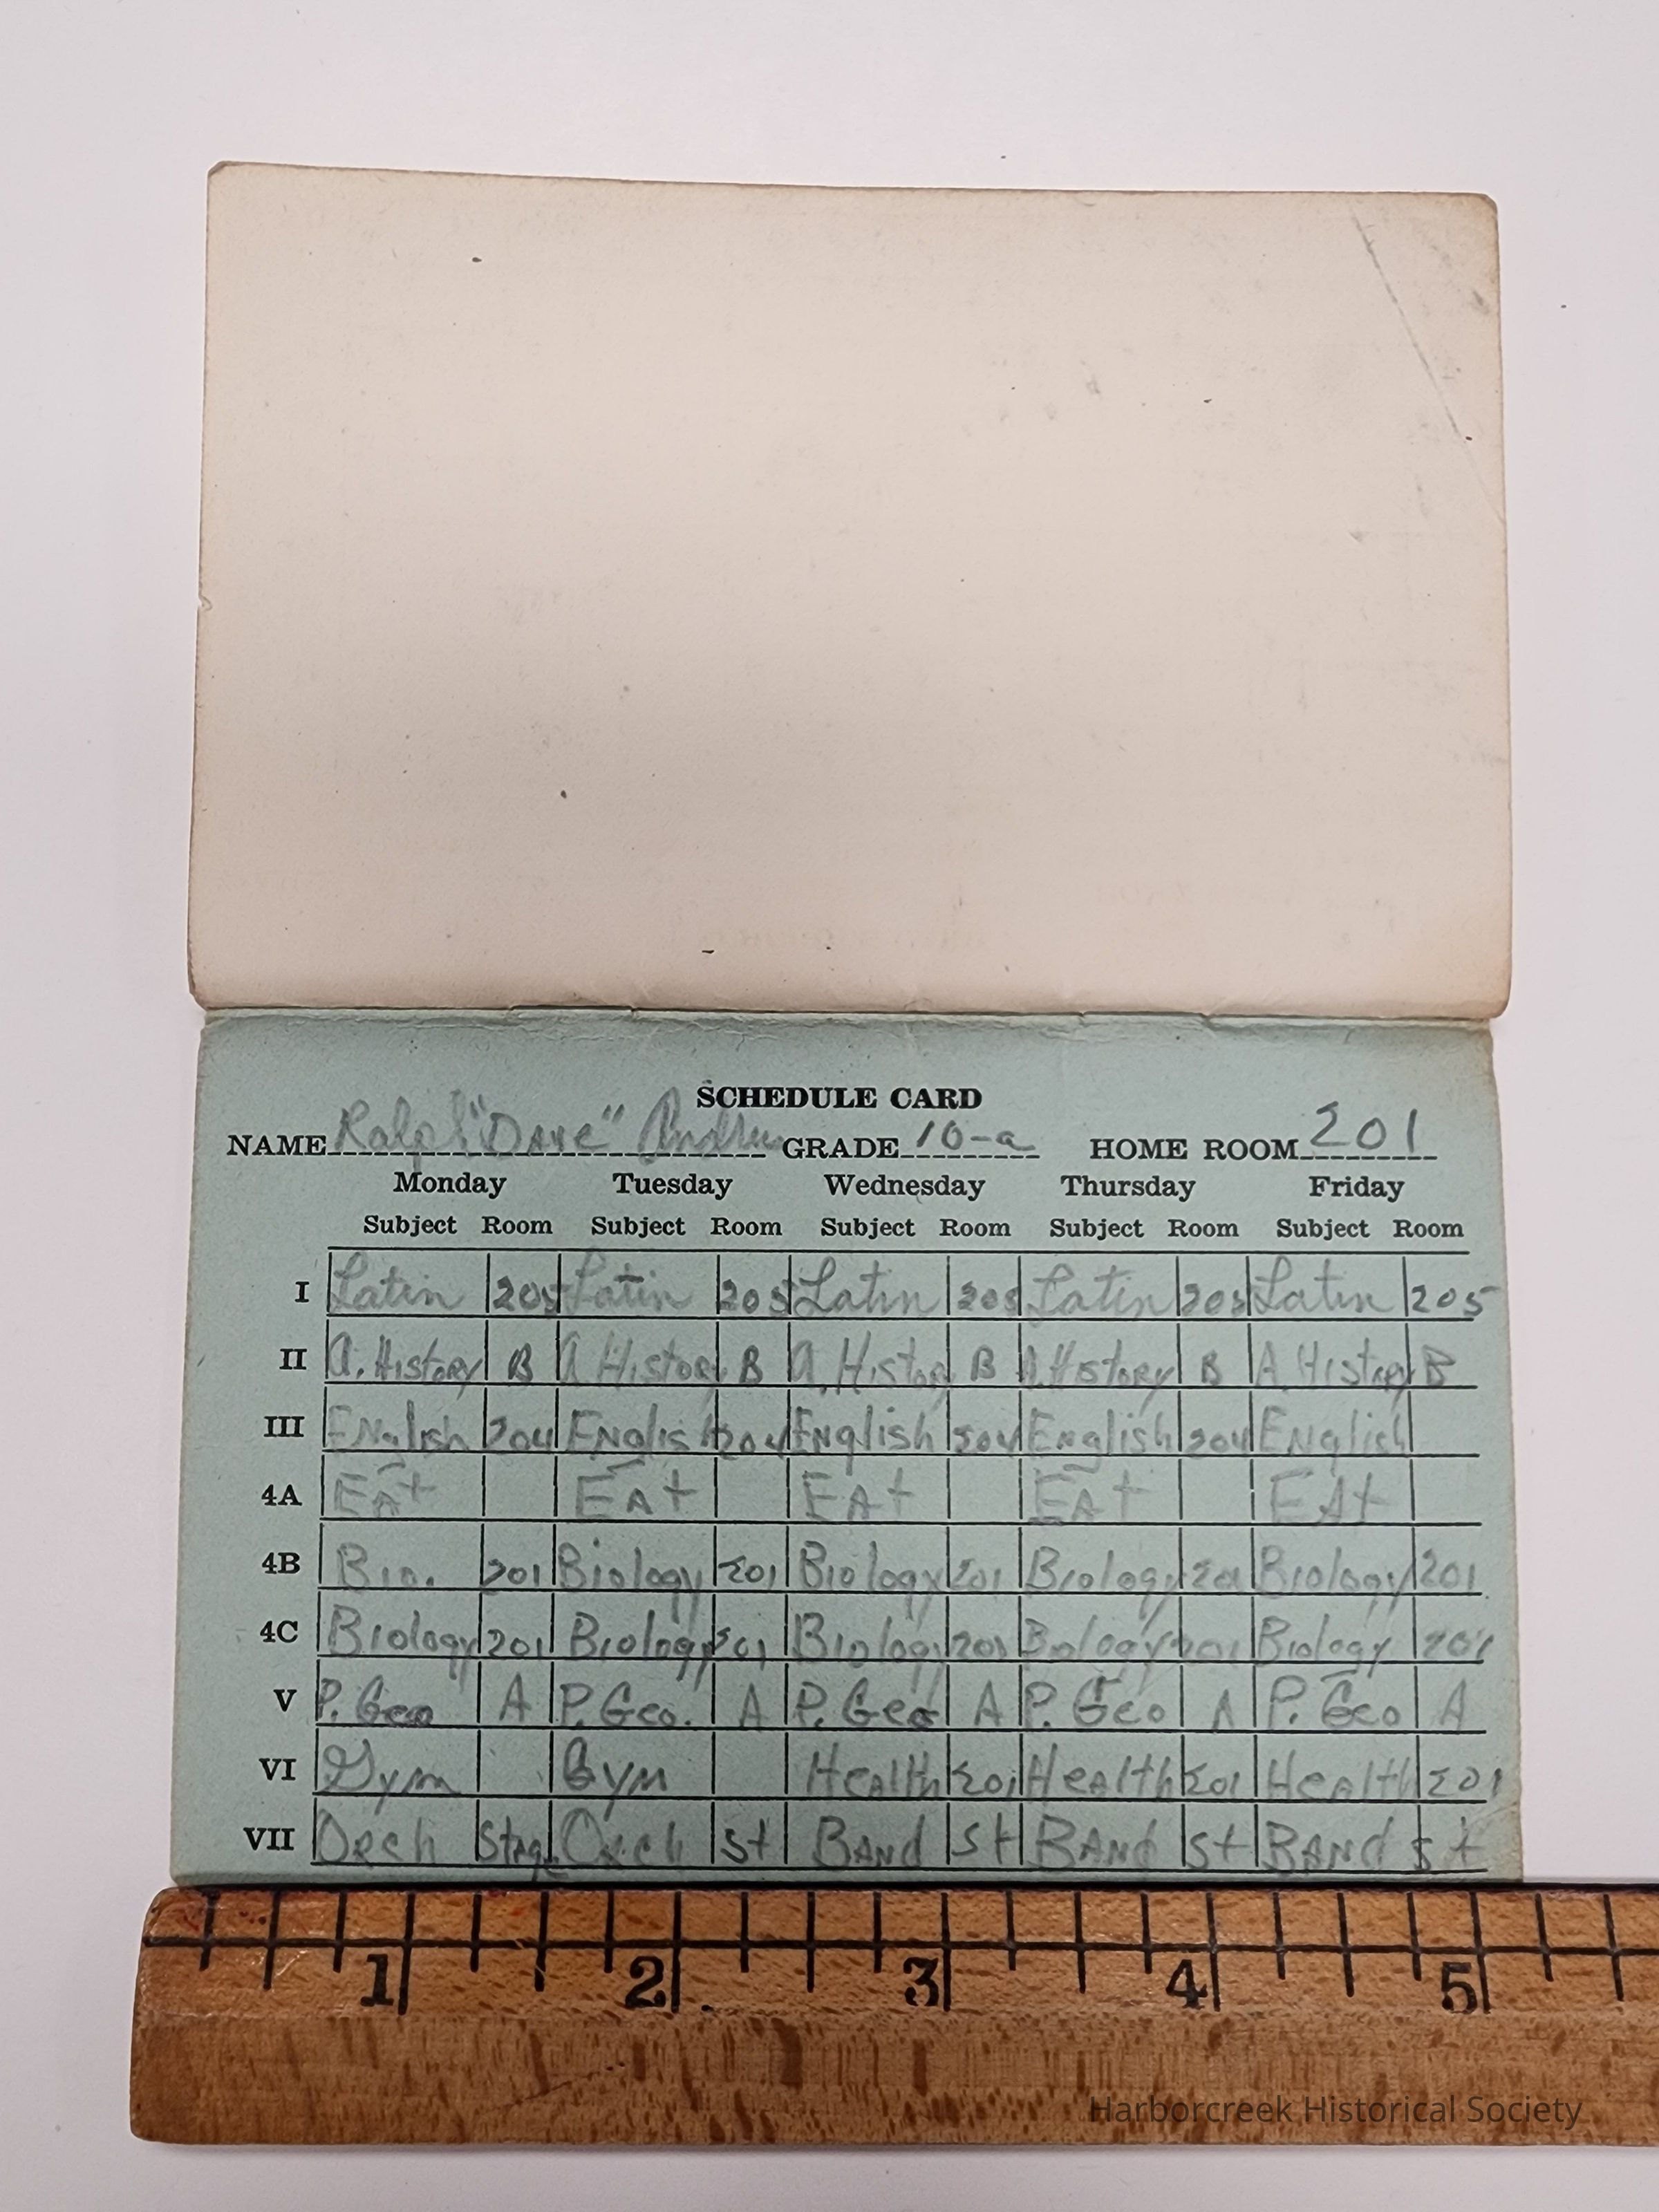 SCHEDULE CARD
NAME Ralph "Dave" Andrews GRADE 10-a HOME ROOM 201
Monday Tuesday Wednesday Thursday Friday
Subject Room Subject Room Subject Room Subject Room Subject Room
I Latin 205 Latin 205 Latin 205 Latin 205 Latin 205
II A. History B A History B A. History B A. History B A History B
III English 204 English 204 English 204 English 204 English
4A EAt EAt EAt EAt EAt
4B Bio. 201 Biology 201 Biology 201 Biology 201 Biology 201
4C Biology 201 Biology 201 Biology 201 Biology 201 Biology 201
V P. Geo A P. Geo. A P. Geo A P. Geo A P. Geo A
VI Gym Gym Health 201 Health 201 Health 201
VII Orch Stage Orch St BAND St BANd St BANd St
1 2 3 4 5
Harborcreek Historical Society